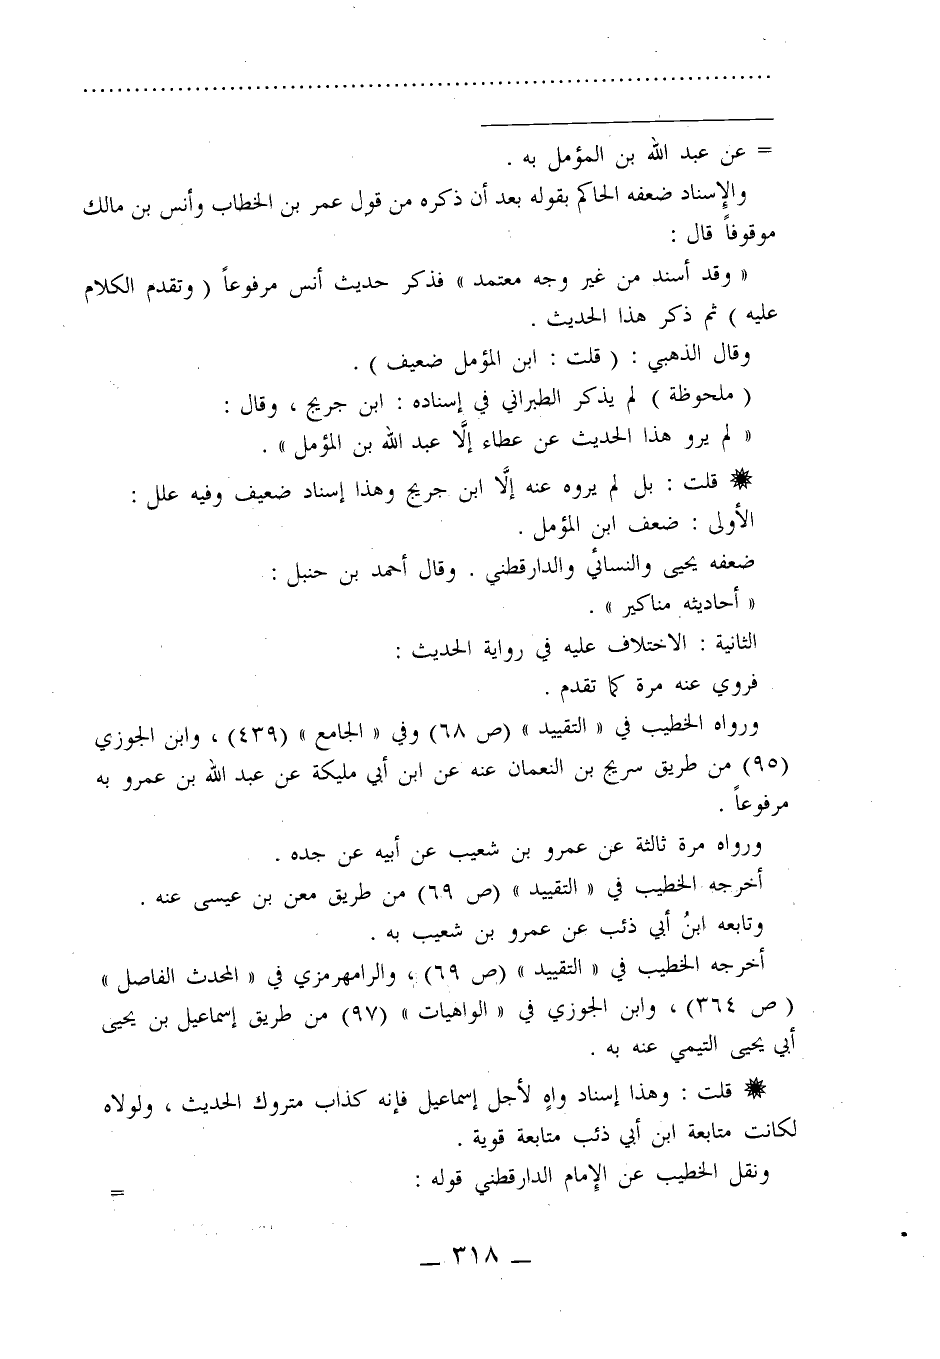 = عن عبد الله بن المؤمل به .
والإسناد ضعفه الحاكم بقوله بعد أن ذكره من قول عمر بن الخطاب وأنس بن مالك
موقوفاً قال :
« وقد أسند من غير وجه معتمد » فذكر حديث أنس مرفوعاً ( وتقدم الكلام
عليه ) ثم ذكر هذا الحديث .
وقال الذهبي : ( قلت : ابن المؤمل ضعيف ) .
( ملحوظة ) لم يذكر الطبراني في إسناده : ابن جريج ، وقال :
« لم يرو هذا الحديث عن عطاء إلَّا عبد الله بن المؤمل » .
✹ قلت : بل لم يروه عنه إلَّا ابن جريج وهذا إسناد ضعيف وفيه علل :
الأولى : ضعف ابن المؤمل .
ضعفه يحيى والنسائي والدارقطني . وقال أحمد بن حنبل :
« أحاديثه مناكير » .
الثانية : الاختلاف عليه في رواية الحديث :
فروي عنه مرة كما تقدم .
ورواه الخطيب في « التقييد » (ص ٦٨) وفي « الجامع » (٤٣٩) ، وابن الجوزي
(٩٥) من طريق سريج بن النعمان عنه عن ابن أبي مليكة عن عبد الله بن عمرو به
مرفوعاً .
ورواه مرة ثالثة عن عمرو بن شعيب عن أبيه عن جده .
أخرجه الخطيب في « التقييد » (ص ٦٩) من طريق معن بن عيسى عنه .
وتابعه ابنُ أبي ذئب عن عمرو بن شعيب به .
أخرجه الخطيب في « التقييد » (ص ٦٩) ، والرامهرمزي في « المحدث الفاصل »
( ص ٣٦٤) ، وابن الجوزي في « الواهيات » (٩٧) من طريق إسماعيل بن يحيى
أبي يحيى التيمي عنه به .
✹ قلت : وهذا إسناد واهٍ لأجل إسماعيل فإنه كذاب متروك الحديث ، ولولاه
لكانت متابعة ابن أبي ذئب متابعة قوية .
ونقل الخطيب عن الإمام الدارقطني قوله :
=
_ ٣١٨ _